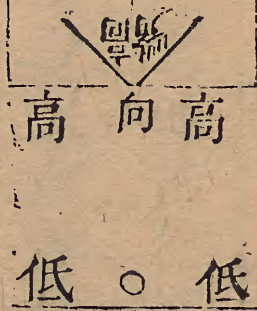 高向高
低○低